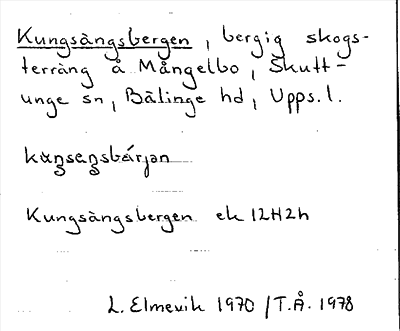 Kungsängsbergen, bergig skogs-
terräng å Mångelbo, Skutt-
unge sn, Bälinge hd, Upps.l.
kuŋsɛŋsbárjan
Kungsängsbergen ek 12H2h
L. Elmevik 1970 /T.Å. 1978